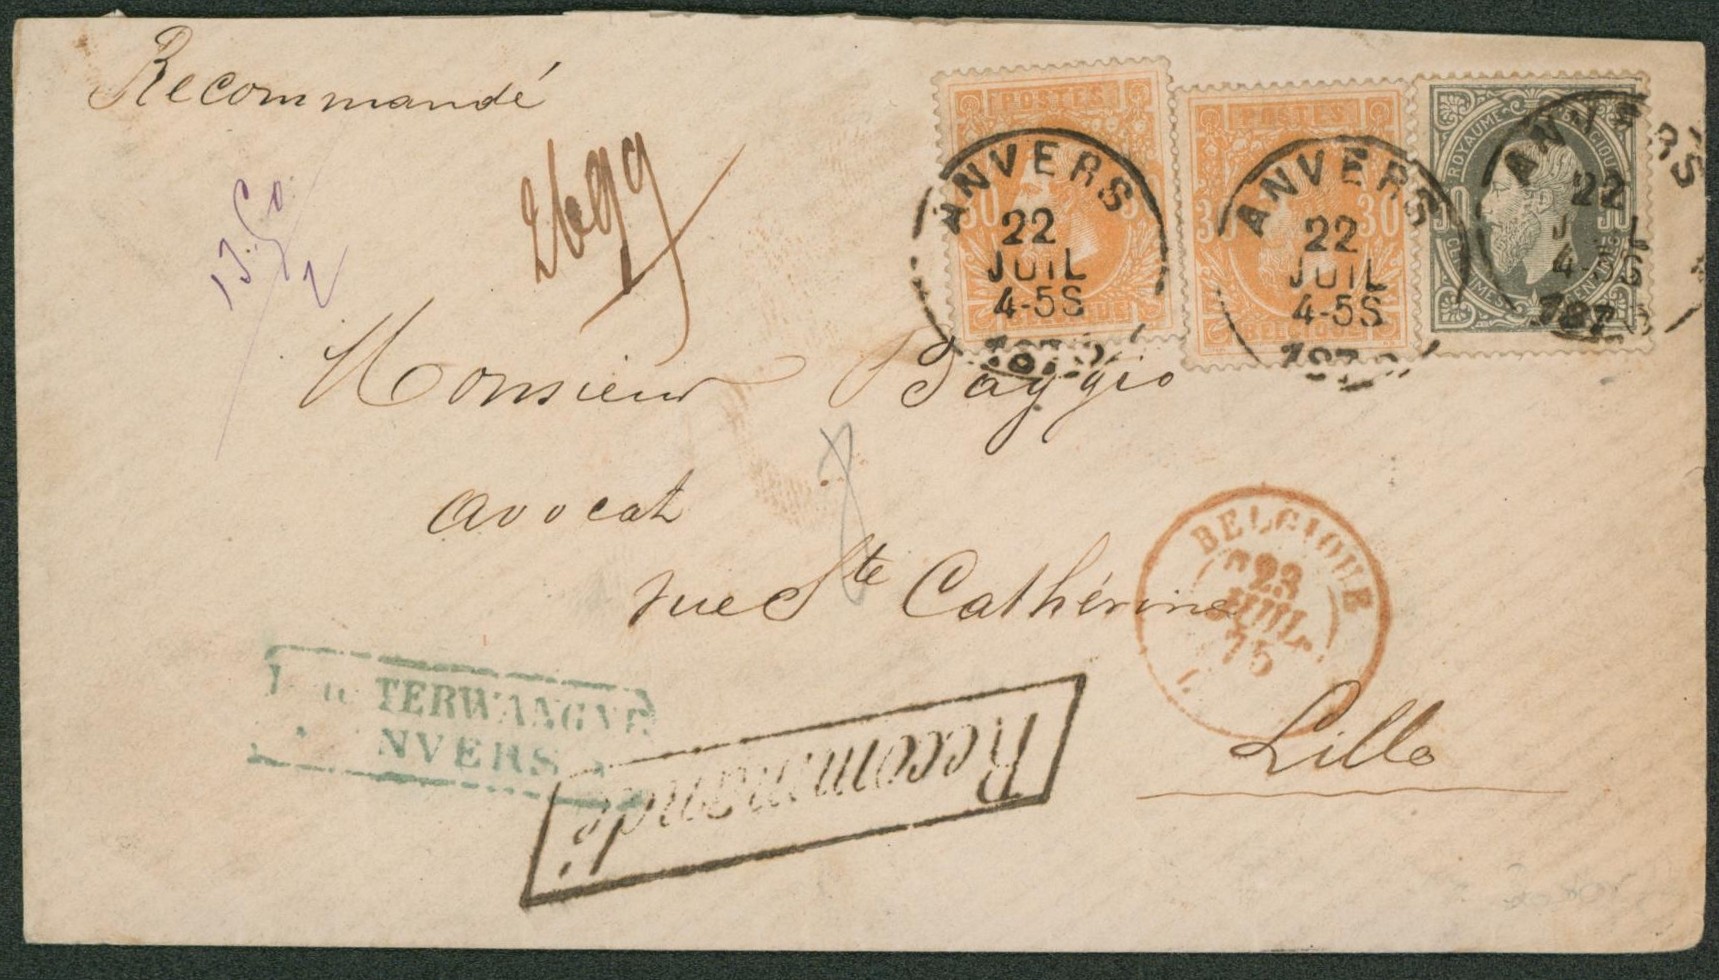 Recommandé
POSTES
30
BELGIQUE
ANVERS
22
JUIL
4-5S
POSTES
30 30
BELGIQUE
ANVERS
22
JUIL
4-5S
ROYAUME BELGIQUE
CENTIMES CENTIMES
ANVERS
22
2699
Monsieur Baggio
avocat
rue Ste Cathérine
Lille
BELGIQUE
23
JUIL
75
TERWANGNE
ANVERS
Recommandé